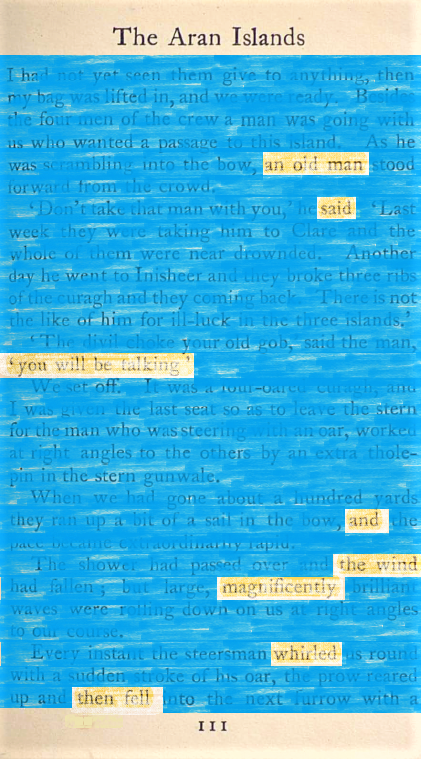 The Aran Islands
I had not yet seen them give to anything, then
my bag was lifted in, and we were ready. Beside
the four men of the crew a man was going with
us who wanted a passage to this island. As he
was scrambling into the bow, an old man stood
forward from the crowd.
'Don't take that man with you,' he said. 'Last
week they were taking him to Clare and the
whole of them were near drownded. Another
day he went to Inisheer and they broke three ribs
of the curagh and they coming back. There is not
the like of him for ill-luck in the three islands.'
'The divil choke your old gob,' said the man,
'you will be talking'
We set off. It was a four-oared curagh, and
I was given the last seat so as to leave the stern
for the man who was steering with an oar, worked
at right angles to the others by an extra thole-
pin in the stern gunwale.
When we had gone about a hundred yards
they ran up a bit of a sail in the bow, and the
pace became extraordinarily rapid.
The shower had passed over and the wind
had fallen; but large, magnificently brilliant
waves were rolling down on us at right angles
to our course.
Every instant the steersman whirled us round
with a sudden stroke of his oar, the prow reared
up and then fell into the next furrow with a
III